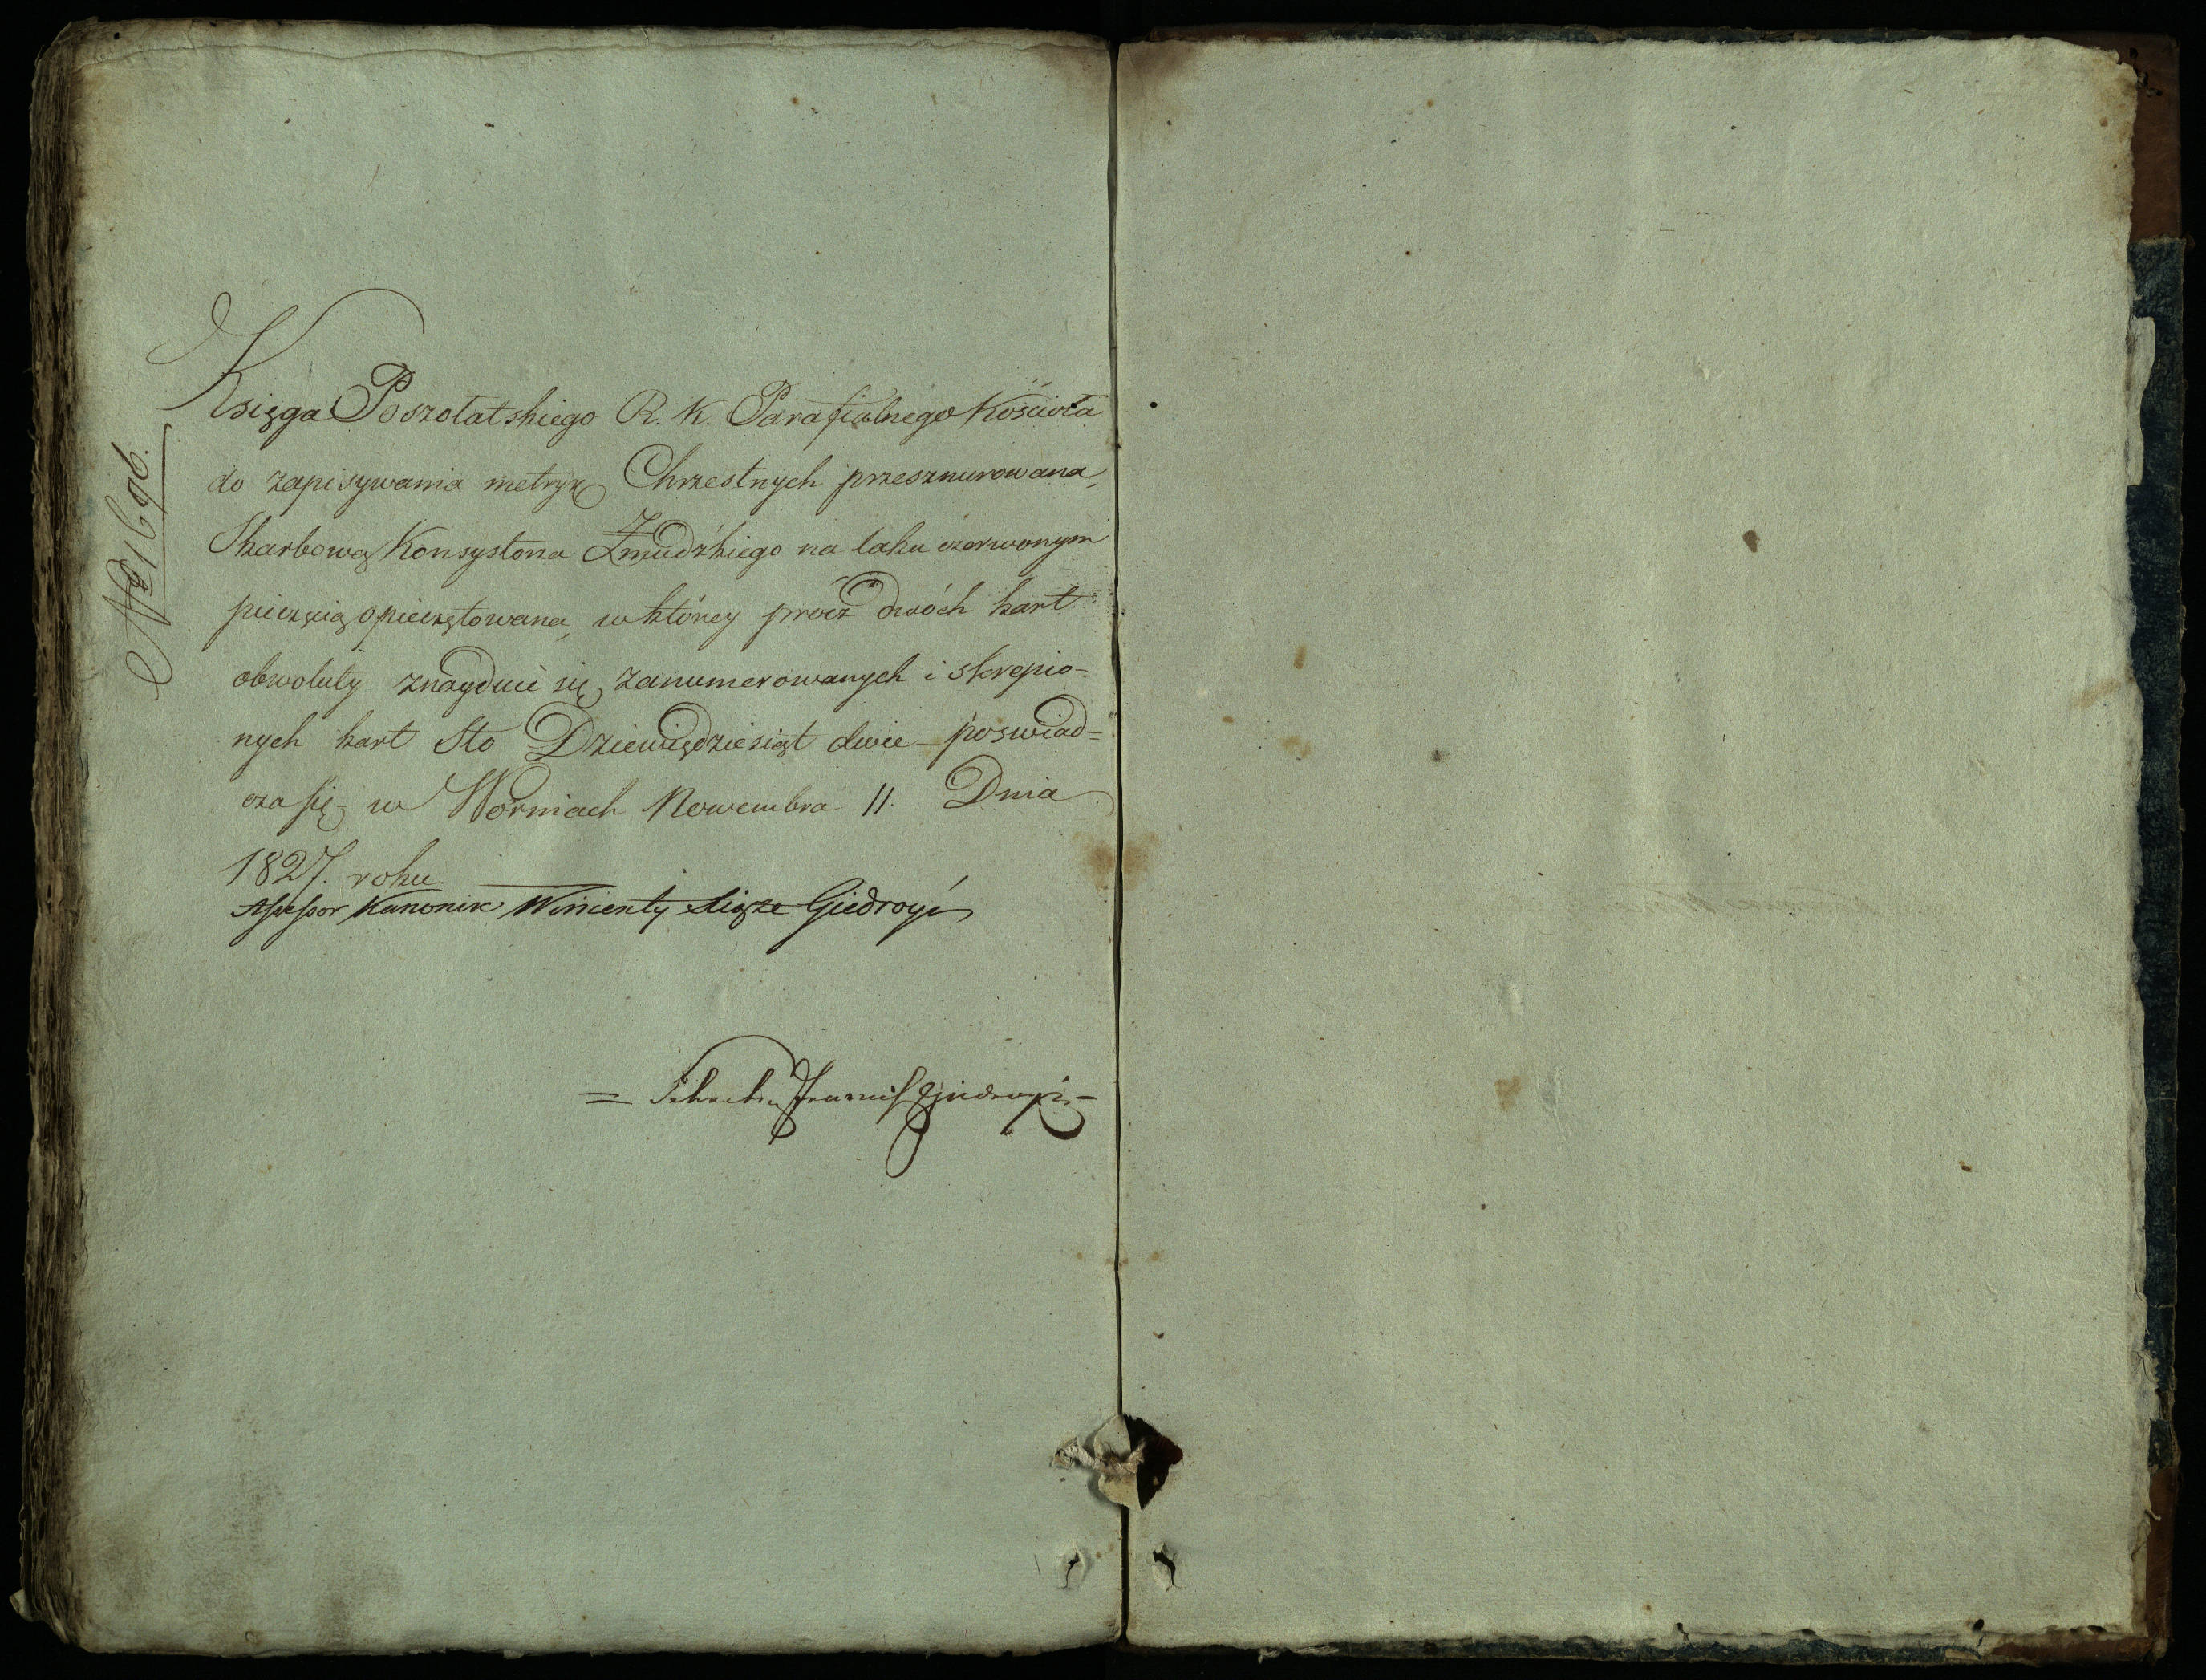 № 1696.
Księga Poszołatskiego R. K. Parafialnego Kościoła
do zapisywania metryk Chrzestnych przesznurowana,
Skarbową Konsystorza Żmudzkiego na laku czerwonym
pieczęcią opieczętowana, w którey prócz dwóch kart
obwoluty znayduie się zanumerowanych i skrepio=
nych kart Sto Dziewięдziesiąt dwie – poswiad=
cza się w Worniach Nowembra 11. Dnia
1827. roku
Assessor Kanonik Wincenty Xiąże Giedroyć
= Sekretarz Giedroyć –